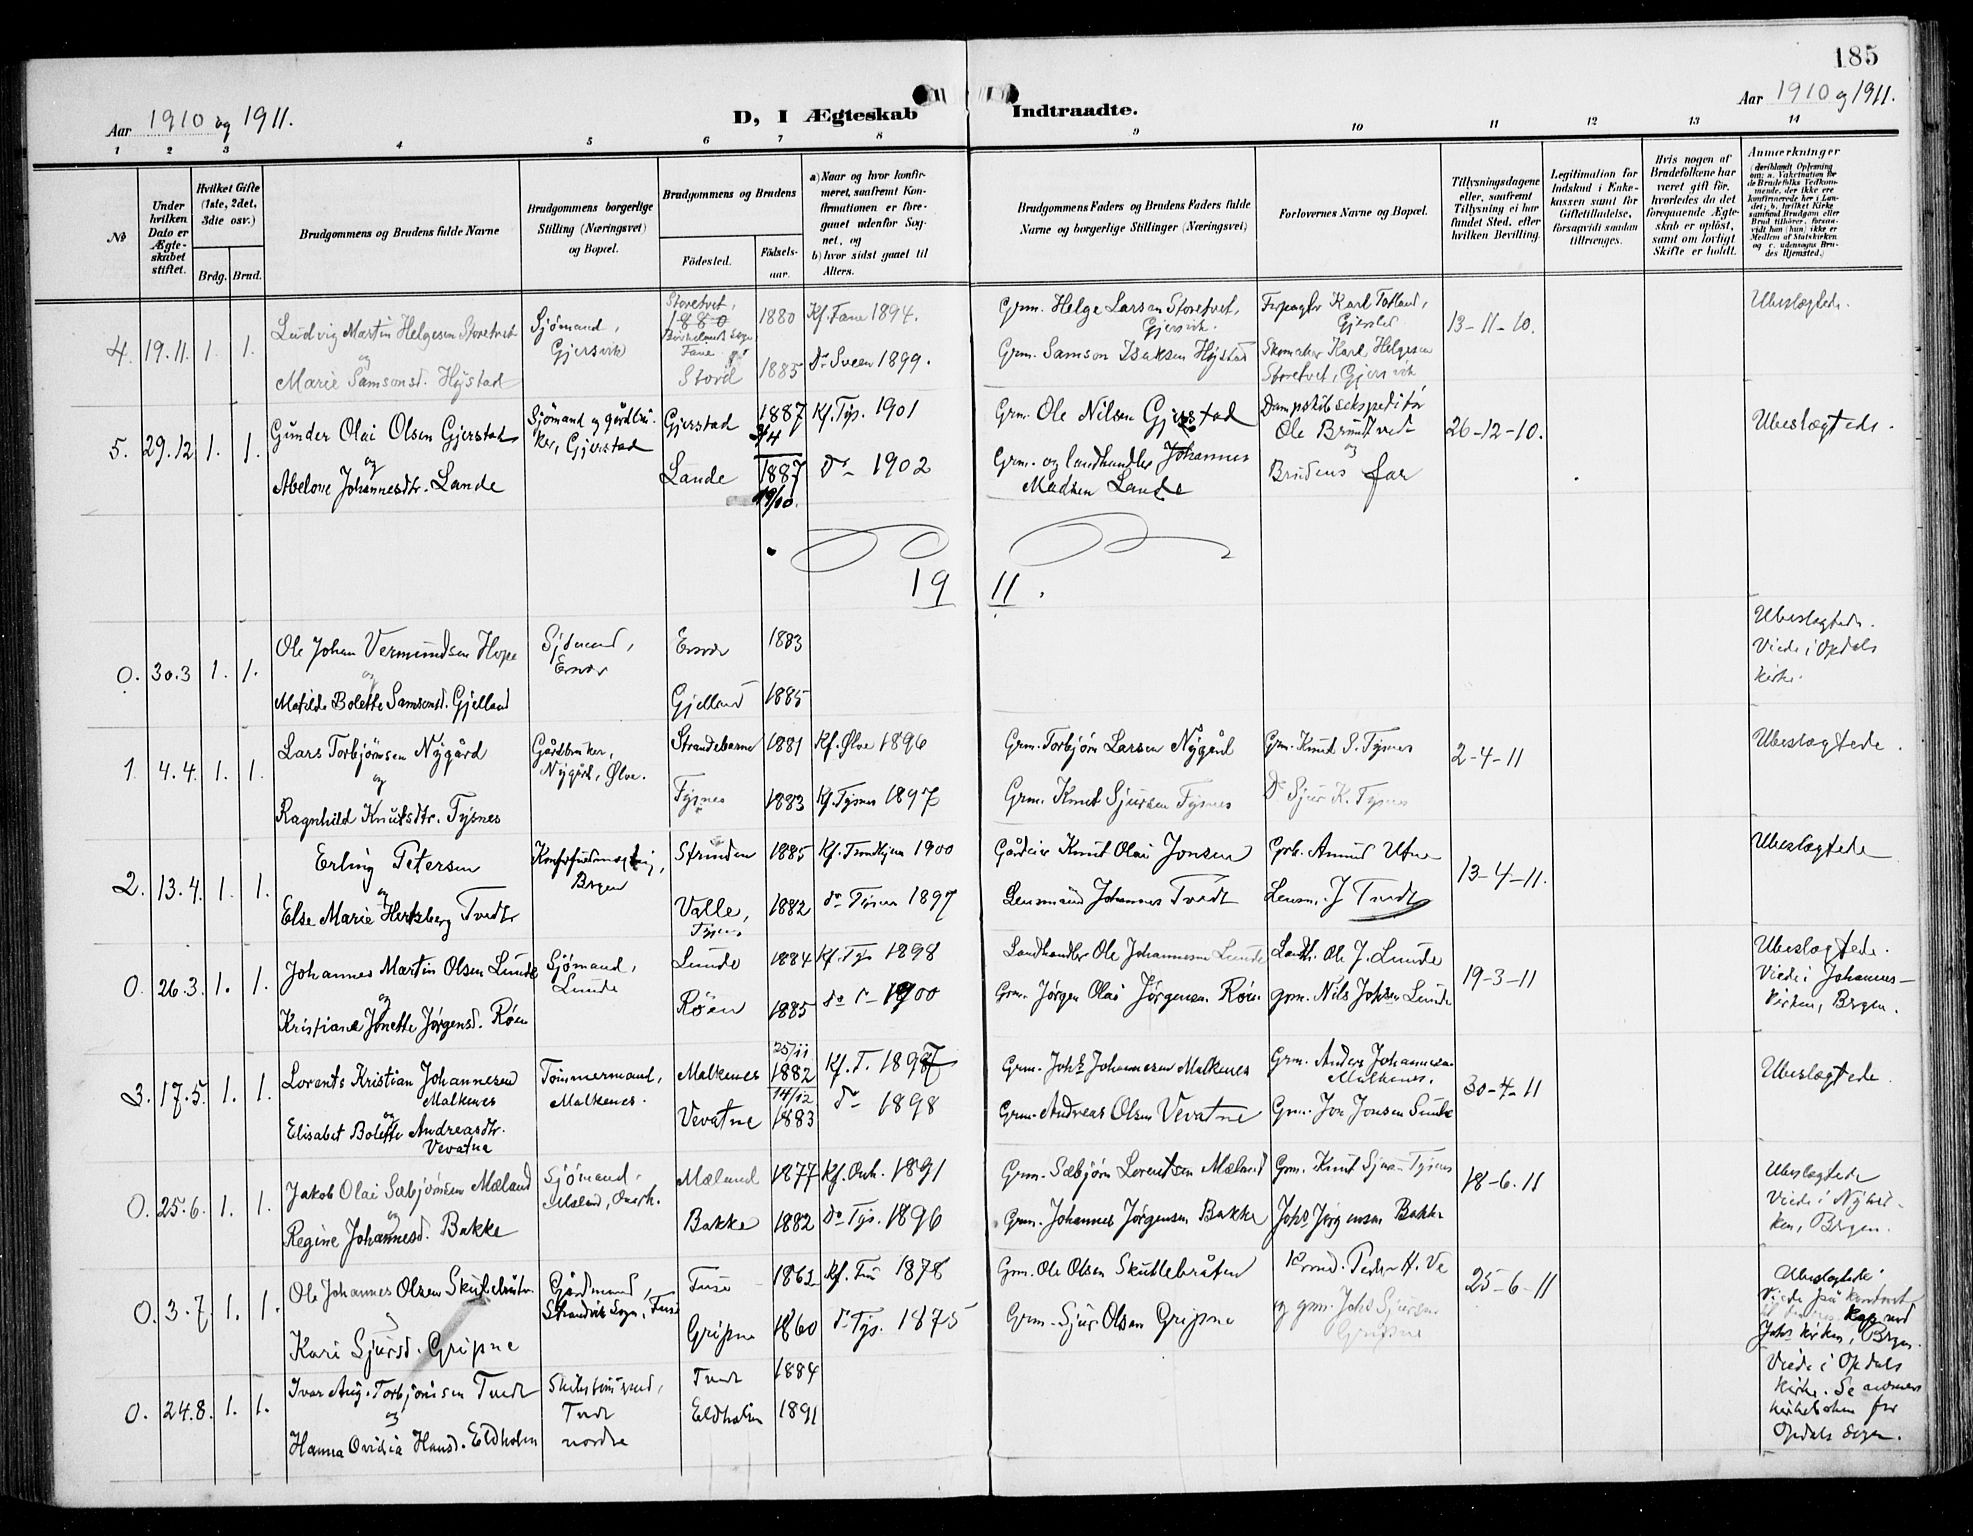 185
Aar 1910 og 1911.
D, I Ægteskab Indtraadte.
Aar 1910 og 1911.
1 2 3 4 5 6 7 8 9 10 11 12 13 14
No
Under hvilken Dato er Ægteskabet stiftet.
Hvilket Gifte (1ste, 2det, 3die osv.)
Brdg. Brud.
Brudgommens og Brudens fulde Navne
Brudgommens borgerlige Stilling (Næringsvei) og Bopæl.
Brudgommens og Brudens
Fødested. Fødselsaar.
a) Naar og hvor konfirmeret, saafremt Konfirmationen er foregaaet udenfor Sognet, og
b) hvor sidst gaaet til Alters.
Brudgommens Faders og Brudens Faders fulde Navne og borgerlige Stillinger (Næringsvei)
Forlovernes Navne og Bopæl.
Tillysningsdagene eller, saafremt Tillysning ei har fundet Sted, efter hvilken Bevilling.
Legitimation for Indskud i Enkekassen samt for Giftetilladelse, forsaavidt saadan tiltrænges.
Hvis nogen af Brudefolkene har været gift før, hvorledes da det foregaaende Ægteskab er opløst, samt om lovligt Skifte er holdt.
Anmærkninger
4. 19.11. 1. 1. Ludvig Martin Helgesen Storetvet
og
Marie Samsonsd. Høystad
Sjømand, Gjersvik
Storetvet, 1880
Birkelands sogn Fane
1880 Kf. Fane 1894.
Stord 1885 Do Sveen 1899.
Grm. Helge Larsen Storetvet, Gjersvik.
Grm. Samson Isaksen Høystad
Karl Tofland,
Skomaker Karl Helgesen Storetvet, Gjersvik
13-11-10.
Ubeslægtede.
5. 29.12 1. 1. Gunder Olai Olsen Gjerstad
og
Abelone Johannesdtr. Lande
Sjømand og gårdbruker, Gjerstad
Gjerstad 1887 Kf. Tys. 1901
Lande 1887 19/10. Do 1902
Grm. Ole Nilsen Gjerstad
Grm. og landhandler Johannes Madsen Lande
Dampskibsekspeditør Ole Bruntved
og
Brudens far
26-12-10.
Ubeslægtede.
19 11.
0. 30.3 1. 1. Ole Johan Vermundsen Hope
og
Matilde Bolette Samsonsd. Gjelland
Sjømand,
1883
Gjelland 1885
Ubeslægtede.
Viede i Opdals kirke.
1 4.4. 1. 1. Lars Torbjørnsen Nygård
og
Ragnhild Knutsdtr. Tysnes
Gårdbruker, Nygård, Ølve.
Strandebarm 1881 Kf. Ølve 1896
Tysnes 1883 Kf. Tysnes 1897
Grm. Torbjørn Larsen Nygård
Grm. Knut Sjursen Tysnes
Grm. Knut S. Tysnes
Do Sjur K. Tysnes
2-4-11
Ubeslægtede.
2. 13.4. 1. 1. Erling Petersen
og
Else Marie Hertzberg Tvedt
Bergen
Strinden 1885 Kf. Trondhjem 1900
Valle, Tysnes 1882 do Tysnes 1897
Gårdeier Knut Olai Jonsen
Lensmand Johannes Tvedt
Grb. Amund Utne
Lensm. J Tvedt
13-4-11.
Ubeslægtede
0. 26.3. 1. 1. Johannes Martin Olsen Lunde
og
Kristiane Jonette Jørgensd. Røen
Sjømand, Lunde
Lunde 1884 Kf. Tys 1898
Røen 1885 do 1900
Landhandler Ole Johannesen Lunde
Grm. Jørgen Olai Jørgensen Røen.
Landh. Ole J. Lunde
grm. Nils Johsen Lunde
19-3-11
Ubeslægtede.
Viede i Johanneskirken, Bergen.
3. 17.5. 1. 1. Lorents Kristian Johannesen Malkenes
og
Elisabet Bolette Andreasdtr. Vevatne
Tømmermand, Malkenes.
Malkenes 25/11 1882 Kf. T. 1897
Vevatne 14/12 1883 Do 1898
Grm. Johs Johannesen Malkenes
Grm. Andreas Olsen Vevatne
Grm. Anders Johannesen Malkenes.
Grm. Jon Jonsen Lunde
30-4-11
Ubeslægtede.
0. 25.6. 1. 1. Jakob Olai Sæbjørnsen Mæland
og
Regine Johannesd. Bakke
Sjømand, Mæland, Onarh.
Mæland 1877 Kf. Onh. 1891
Bakke 1882 Do Tys. 1896
Grm. Sæbjørn Lorentsen Mæland
Grm. Johannes Jørgensen Bakke
Grm. Knut Sjursen Tysnes
Johs Jørgensen Bakke
18-6.11
Ubeslægtede
Viede i Nykirken, Bergen.
0. 3.7. 1. 1. Ole Johannes Olsen Skutlebråten
Kari Sjursd. Gripne
Gårdmand, Strandvik Sogn, Fuse
Fuse 1862 Kf. Fus 1878
Gripne 1860 do Tys. 1875
Grm. Ole Olsen Skutlebråten
Grm. Sjur Olsen Gripne
Peder H. Ve
og grm. Johs Sjursen Gripne
25-6-11
Ubeslægtede.
Viede på kontoret
Johs kirken, Bergen.
0. 24.8. 1. 1. Ivar Aug. Torbjørnsen Tvedt
og
Hanna Ovidia Hansd. Eldholm
Tvedt nordre
Tvedt 1884
Eldholm 1891
Viede i Opdals kirke. Se
kirkeboken for Opdals sogn.